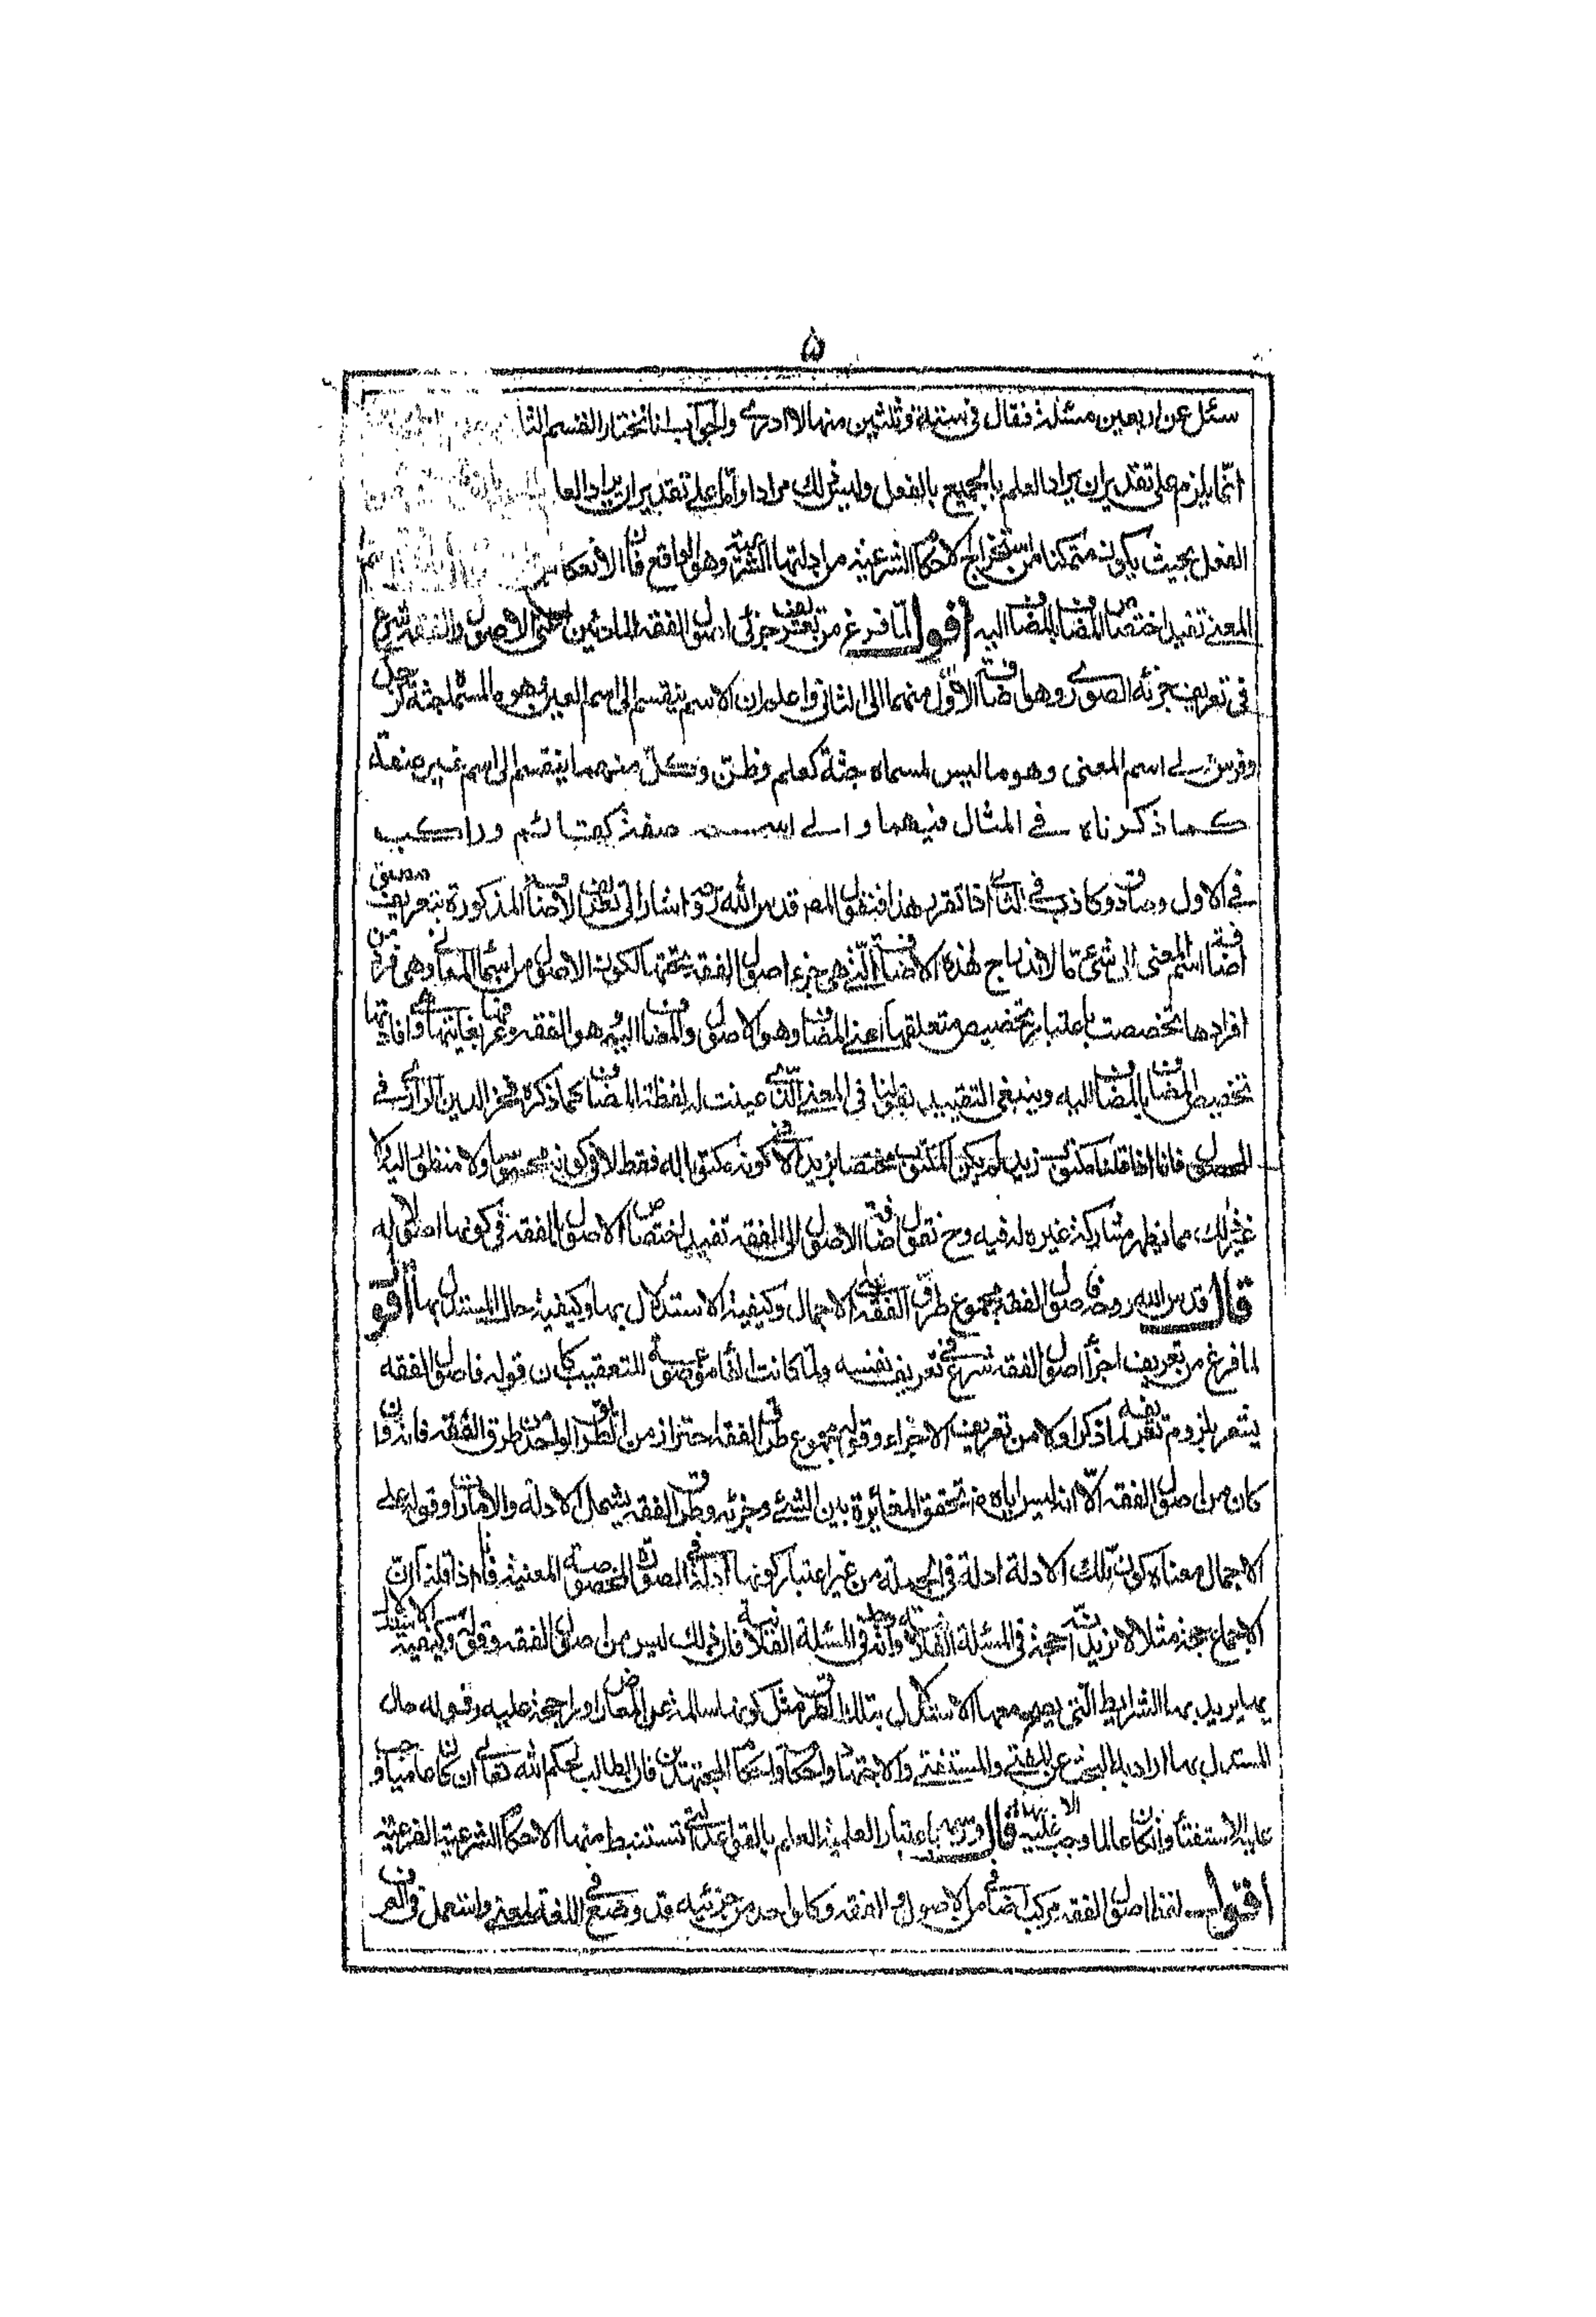 ۵
سئل عن اربعين مسئلة فقال فى ستة وثلثين منها لا ادرى والجواب انا نختار القسم الثا
انّما يلزم على تقدير ان يراد العلم بالجميع بالفعل وليس ذلك مرادا وامّا على تقدير ان يراد العا
الفعل بحيث يكون متمكنا من استخراج الاحكام الشرعية من ادلتها الشرعية وهو الواقع فان الانعكاس
المعنى تفيد اختصاص المضاف بالمضاف اليه أقول لمّا فرغ من تعريف جزئى اصول الفقه المادّيين اعنى الاصول والفقه شرع
فى تعريف جزئه الصورى وهو اضافة الاوّل منهما الى الثانى واعلم ان الاسم ينقسم الى اسم العين وهو ما لمسمّاه جثة كرجل
وفرس والى اسم المعنى وهو ما ليس لمسماه جثة كعلم وظنّ وكلّ منهما ينقسم الى اسم غير صفة
كما ذكرناه فى المثال فيهما والى اسم صفة كقائم وراكب
فى الاول وصادق وكاذب فى الثانى اذا تقرر هذا فنقول المصنف قدس الله روحه اشار الى تعريف الاضافة المذكورة بتعريف مصدق
اضافة اسم المعنى الى شئ قال لاندراج هذه الاضافة الّتى هى جزء اصول الفقه تحتها لكون الاصول من اسماء المعانى وهى فرد من
افرادها تخصصت باعتبار تخصيص متعلقها اعنى المضاف وهو الاصول والمضاف اليه وهو الفقه وعرفها بغايتها وهى افادتها
تخصيص المضاف بالمضاف اليه وينبغى التقييد بقولنا فى المعنى الّذى عينت له لفظة المضاف كما ذكره فخر الدين الرازى فى
المحصول فانا اذا قلنا مكتوب زيد لم يكن المكتوب مختصا بزيد الا فى كونه مكتوبا له فقط لا فى كونه جسما ولا منظورا اليه ولا
غير ذلك مما يظهر مشاركة غيره له فيه وح نقول اضافة الاصول الى الفقه تفيد اختصاص الاصول بالفقه فى كونها اصولا له
قال قدس الله روحه فاصول الفقه مجموع طرق الفقه على الاجمال وكيفية الاستدلال بها وكيفية حال المستدل بها أقول
لما فرغ من تعريف اجزاء اصول الفقه شرع فى تعريف نفسه ولمّا كانت الفاء موضوعة للتعقيب كان قوله فاصول الفقه
يشعر بلزوم تعريفه لما ذكر اولا من تعريف الاجزاء وقوله مجموع طرق الفقه احتراز من الطريق الواحد من طرق الفقه فانه وان
كان من اصول الفقه الّا انه ليس اياه ضرورة تحقق المغائرة بين الشئ وجزئه وطرق الفقه يشمل الادلة والامارات وقوله على
الاجمال معناه كون تلك الادلة ادلة فى الجملة من غير اعتبار كونها ادلة فى الصورة المخصوصة المعينة فانا اذا قلنا ان
الاجماع حجة مثلا لا نريد انّه حجة فى المسئلة الفلانية وانه فى المسئلة الفلانية فان ذلك ليس من اصول الفقه وقوله وكيفية الاستدلال
بها يريد بها الشرايط الّتى يصح معها الاستدلال بتلك الطرق مثل كونها سالمة عن المعارض او راجحة عليه وقوله حال
المستدل بها اراد به البحث عن المفتى والمستفتى والاجتهاد واحكام المجتهدين فان الطالب لحكم الله تعالى ان كان عاميا وجب
عليه الاستفتاء وان كان عالما وجب عليه الاجتهاد قال ورسمه باعتبار العلمية العلم بالقواعد التى تستنبط منها الاحكام الشرعية الفرعية
أقول لفظ اصول الفقه مركب اضافى من الاصول والفقه وكل واحد من جزئيه قد وضع فى اللغة لمعنى واستعمل فى العرف